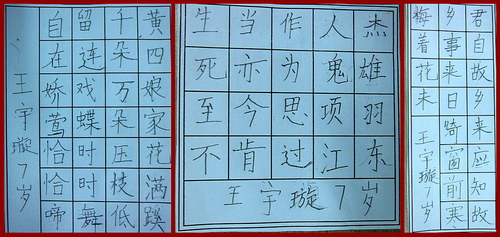 黄四娘家花满蹊
千朵万朵压枝低
留连戏蝶时时舞
自在娇莺恰恰啼
王宇璇7岁
生当作人杰
死亦为鬼雄
至今思项羽
不肯过江东
王宇璇7岁
君自故乡来应知故
乡事来日绮窗前寒
梅着花未
王宇璇7岁